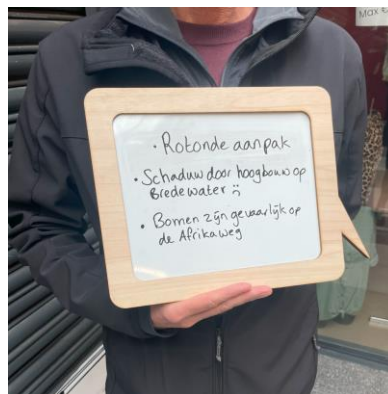 • Rotonde aanpak
• Schaduw door hoogbouw op
Bredewater :(
• Bomen zijn gevaarlijk op
de Afrikaweg
Max €